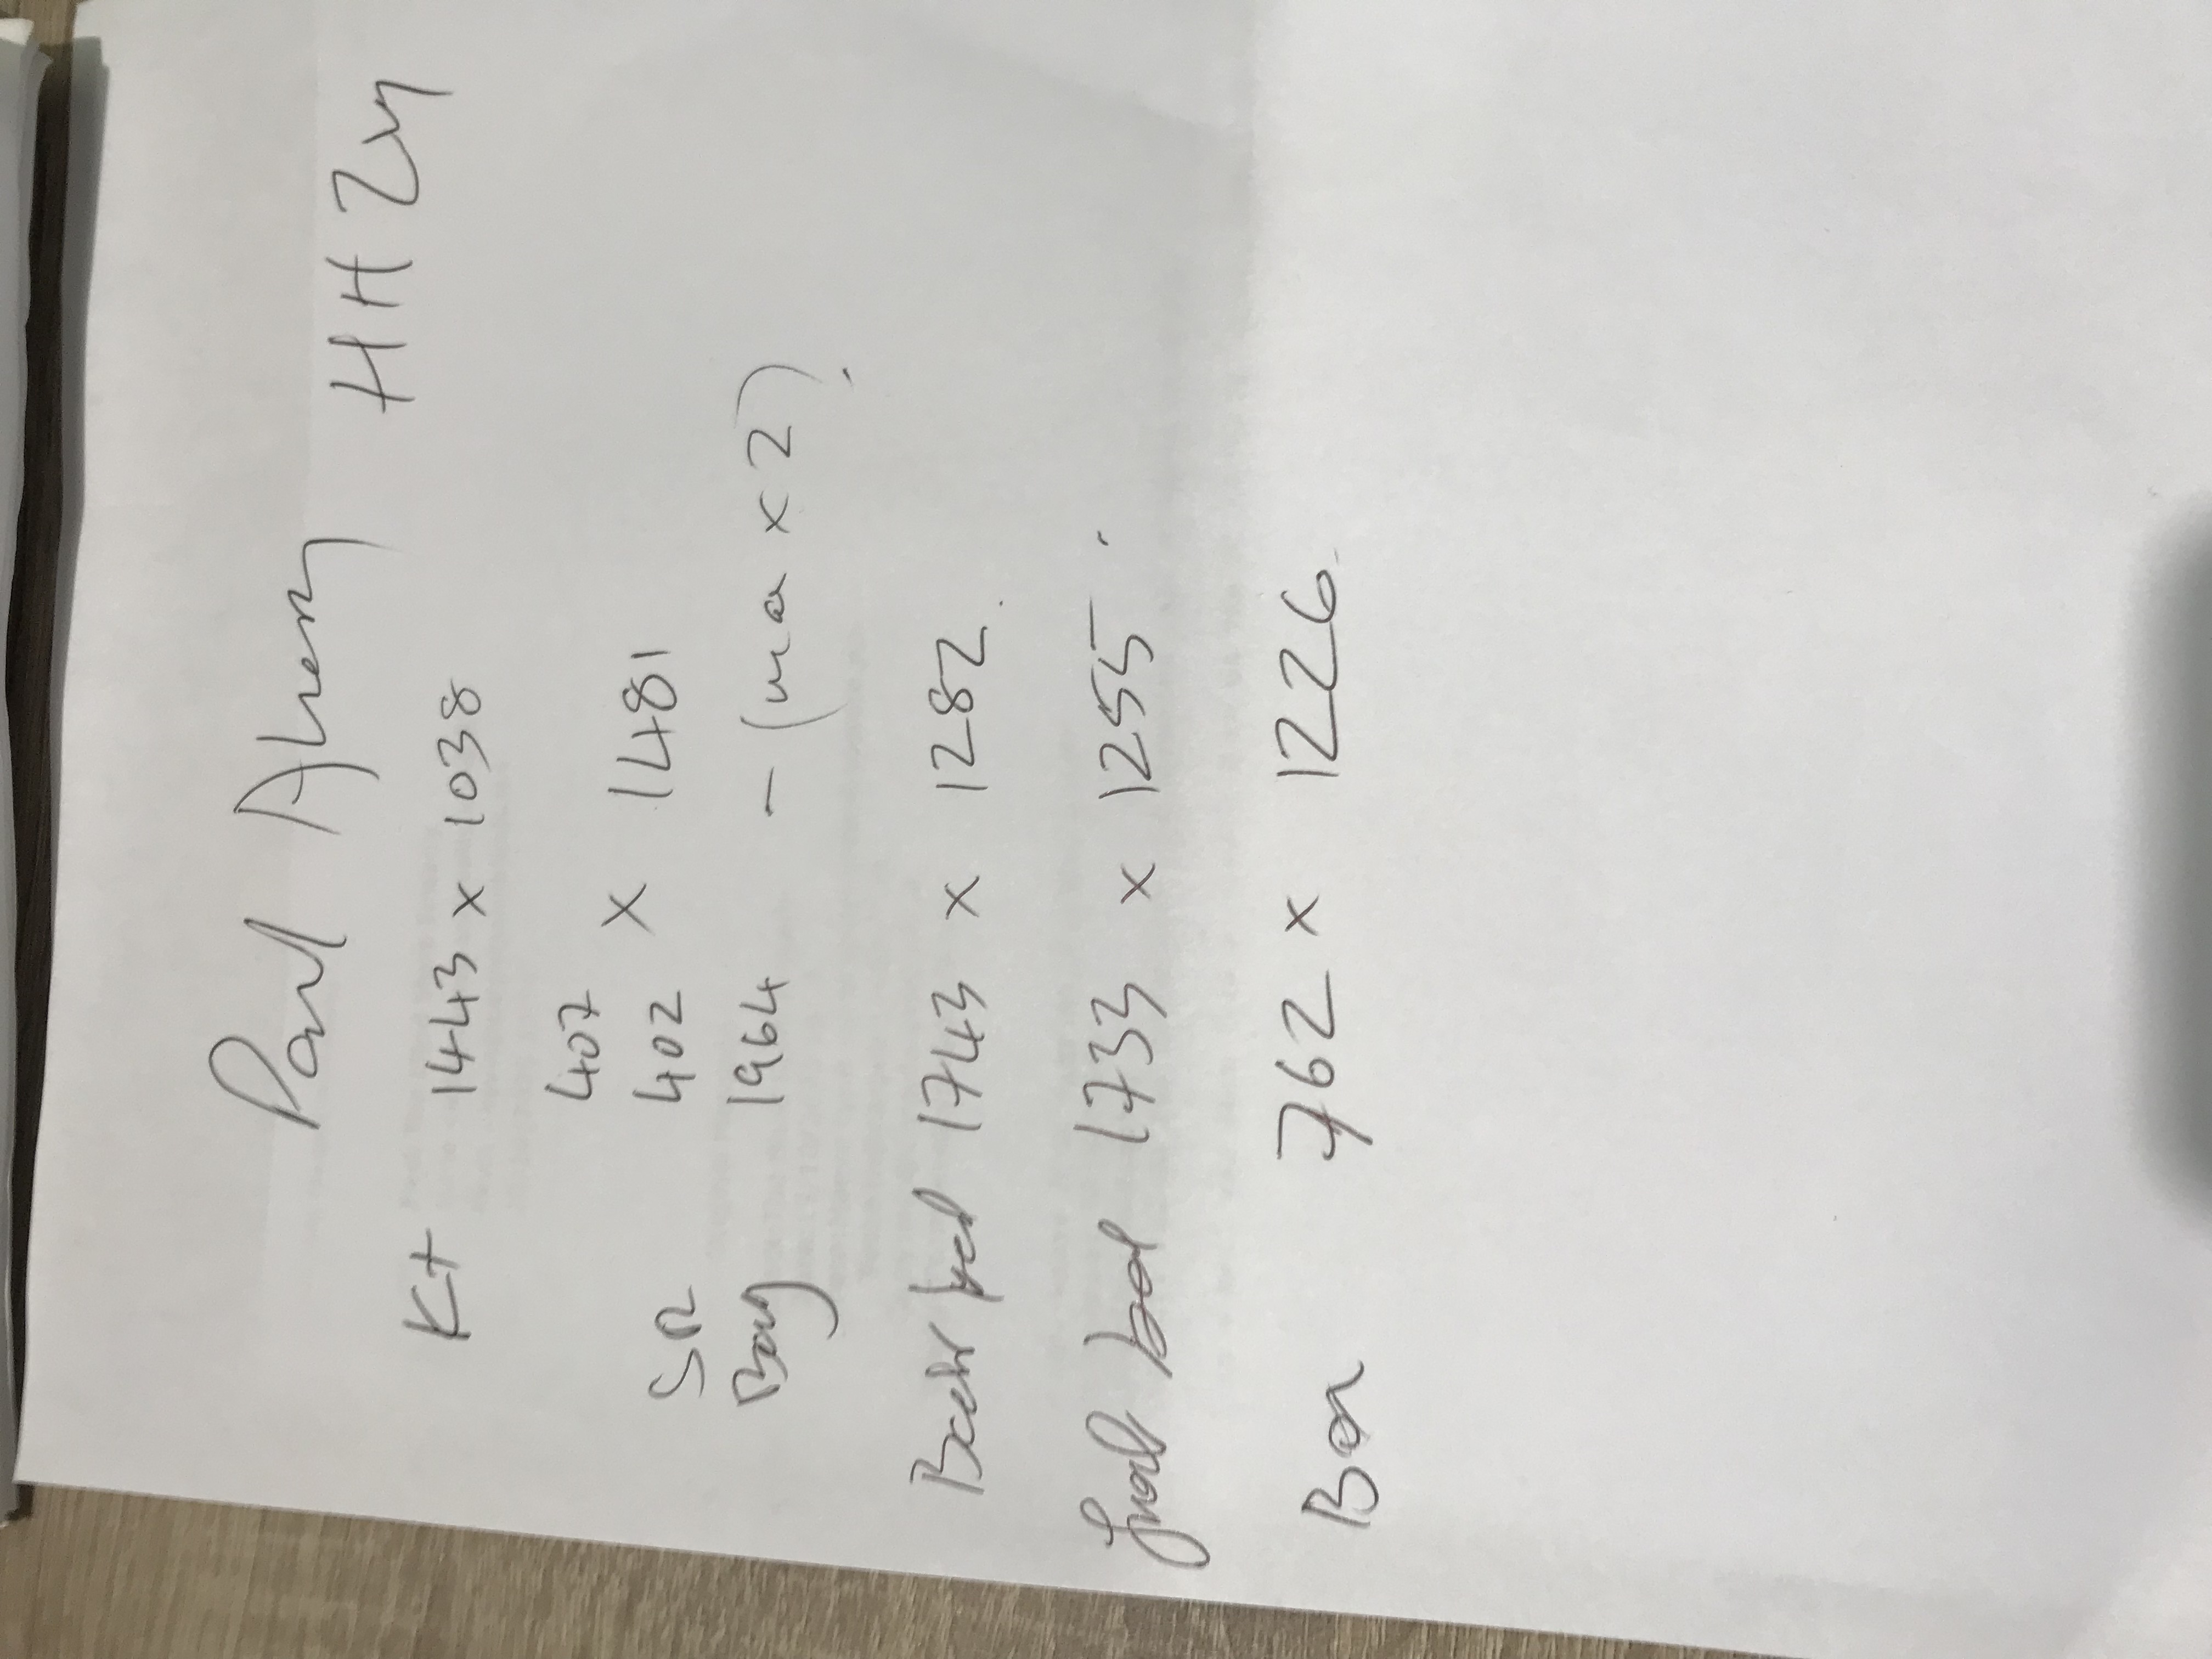 Paul Ahern HH Zy
Kt 1443 x 1038
407
SR 402 x 1481
Bay 1964 - (max x 2).
Back bed 1743 x 1282.
Small bed 1733 x 1255.
762 x 1226.